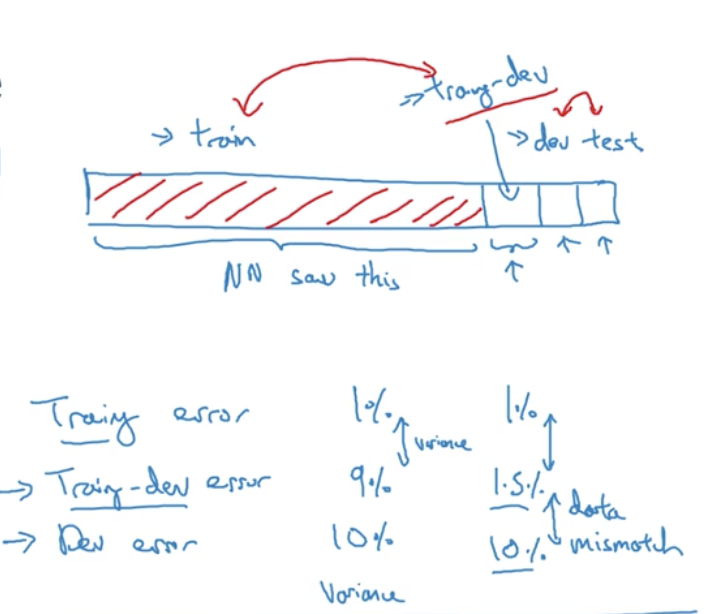 train-dev
train
dev test
NN saw this
Training error 1% 1%
variance
Train-dev error 9% 1.5%
data
Dev error 10% 10% mismatch
Variance